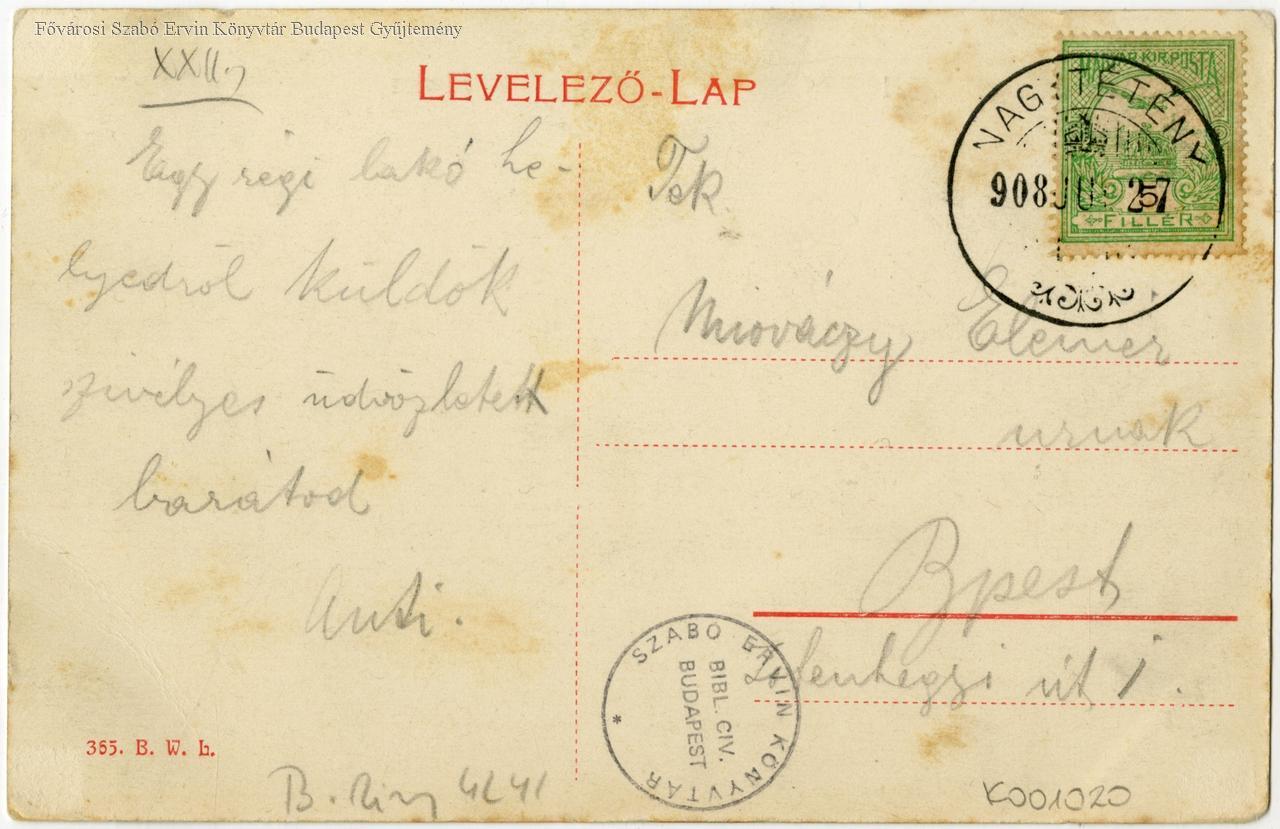 Fővárosi Szabó Ervin Könyvtár Budapest Gyűjtemény
XXII.,
LEVELEZŐ-LAP
MAGYAR KIR. POSTA
NAGYTÉTÉNY
908 JU 27
5
FILLÉR
Egy régi lakó he-
lyedről küldök
szivélyes üdvözletett
barátod
Anti.
Tek
Elemér
urnak
Bpest
Istenhegyi út 1.
SZABÓ ERVIN KÖNYVTÁR
BIBL. CIV.
BUDAPEST
*
365. B. W. L.
B. 4241
K001020